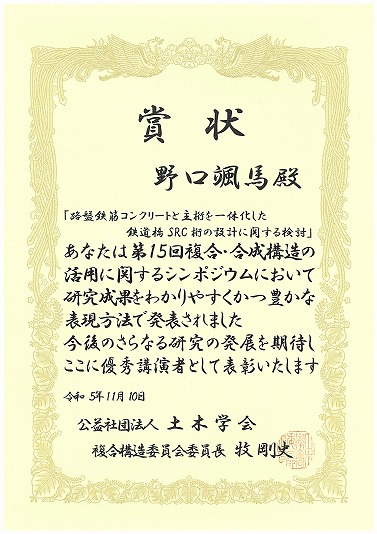 賞状
野口颯馬殿
「路盤鉄筋コンクリートと主桁を一体化した
鉄道橋SRC桁の設計に関する検討」
あなたは第15回複合・合成構造の
活用に関するシンポジウムにおいて
研究成果をわかりやすくかつ豊かな
表現方法で発表されました
今後のさらなる研究の発展を期待し
ここに優秀講演者として表彰いたします
令和 5年11月10日
公益社団法人 土木学会
複合構造委員会委員長 牧剛史